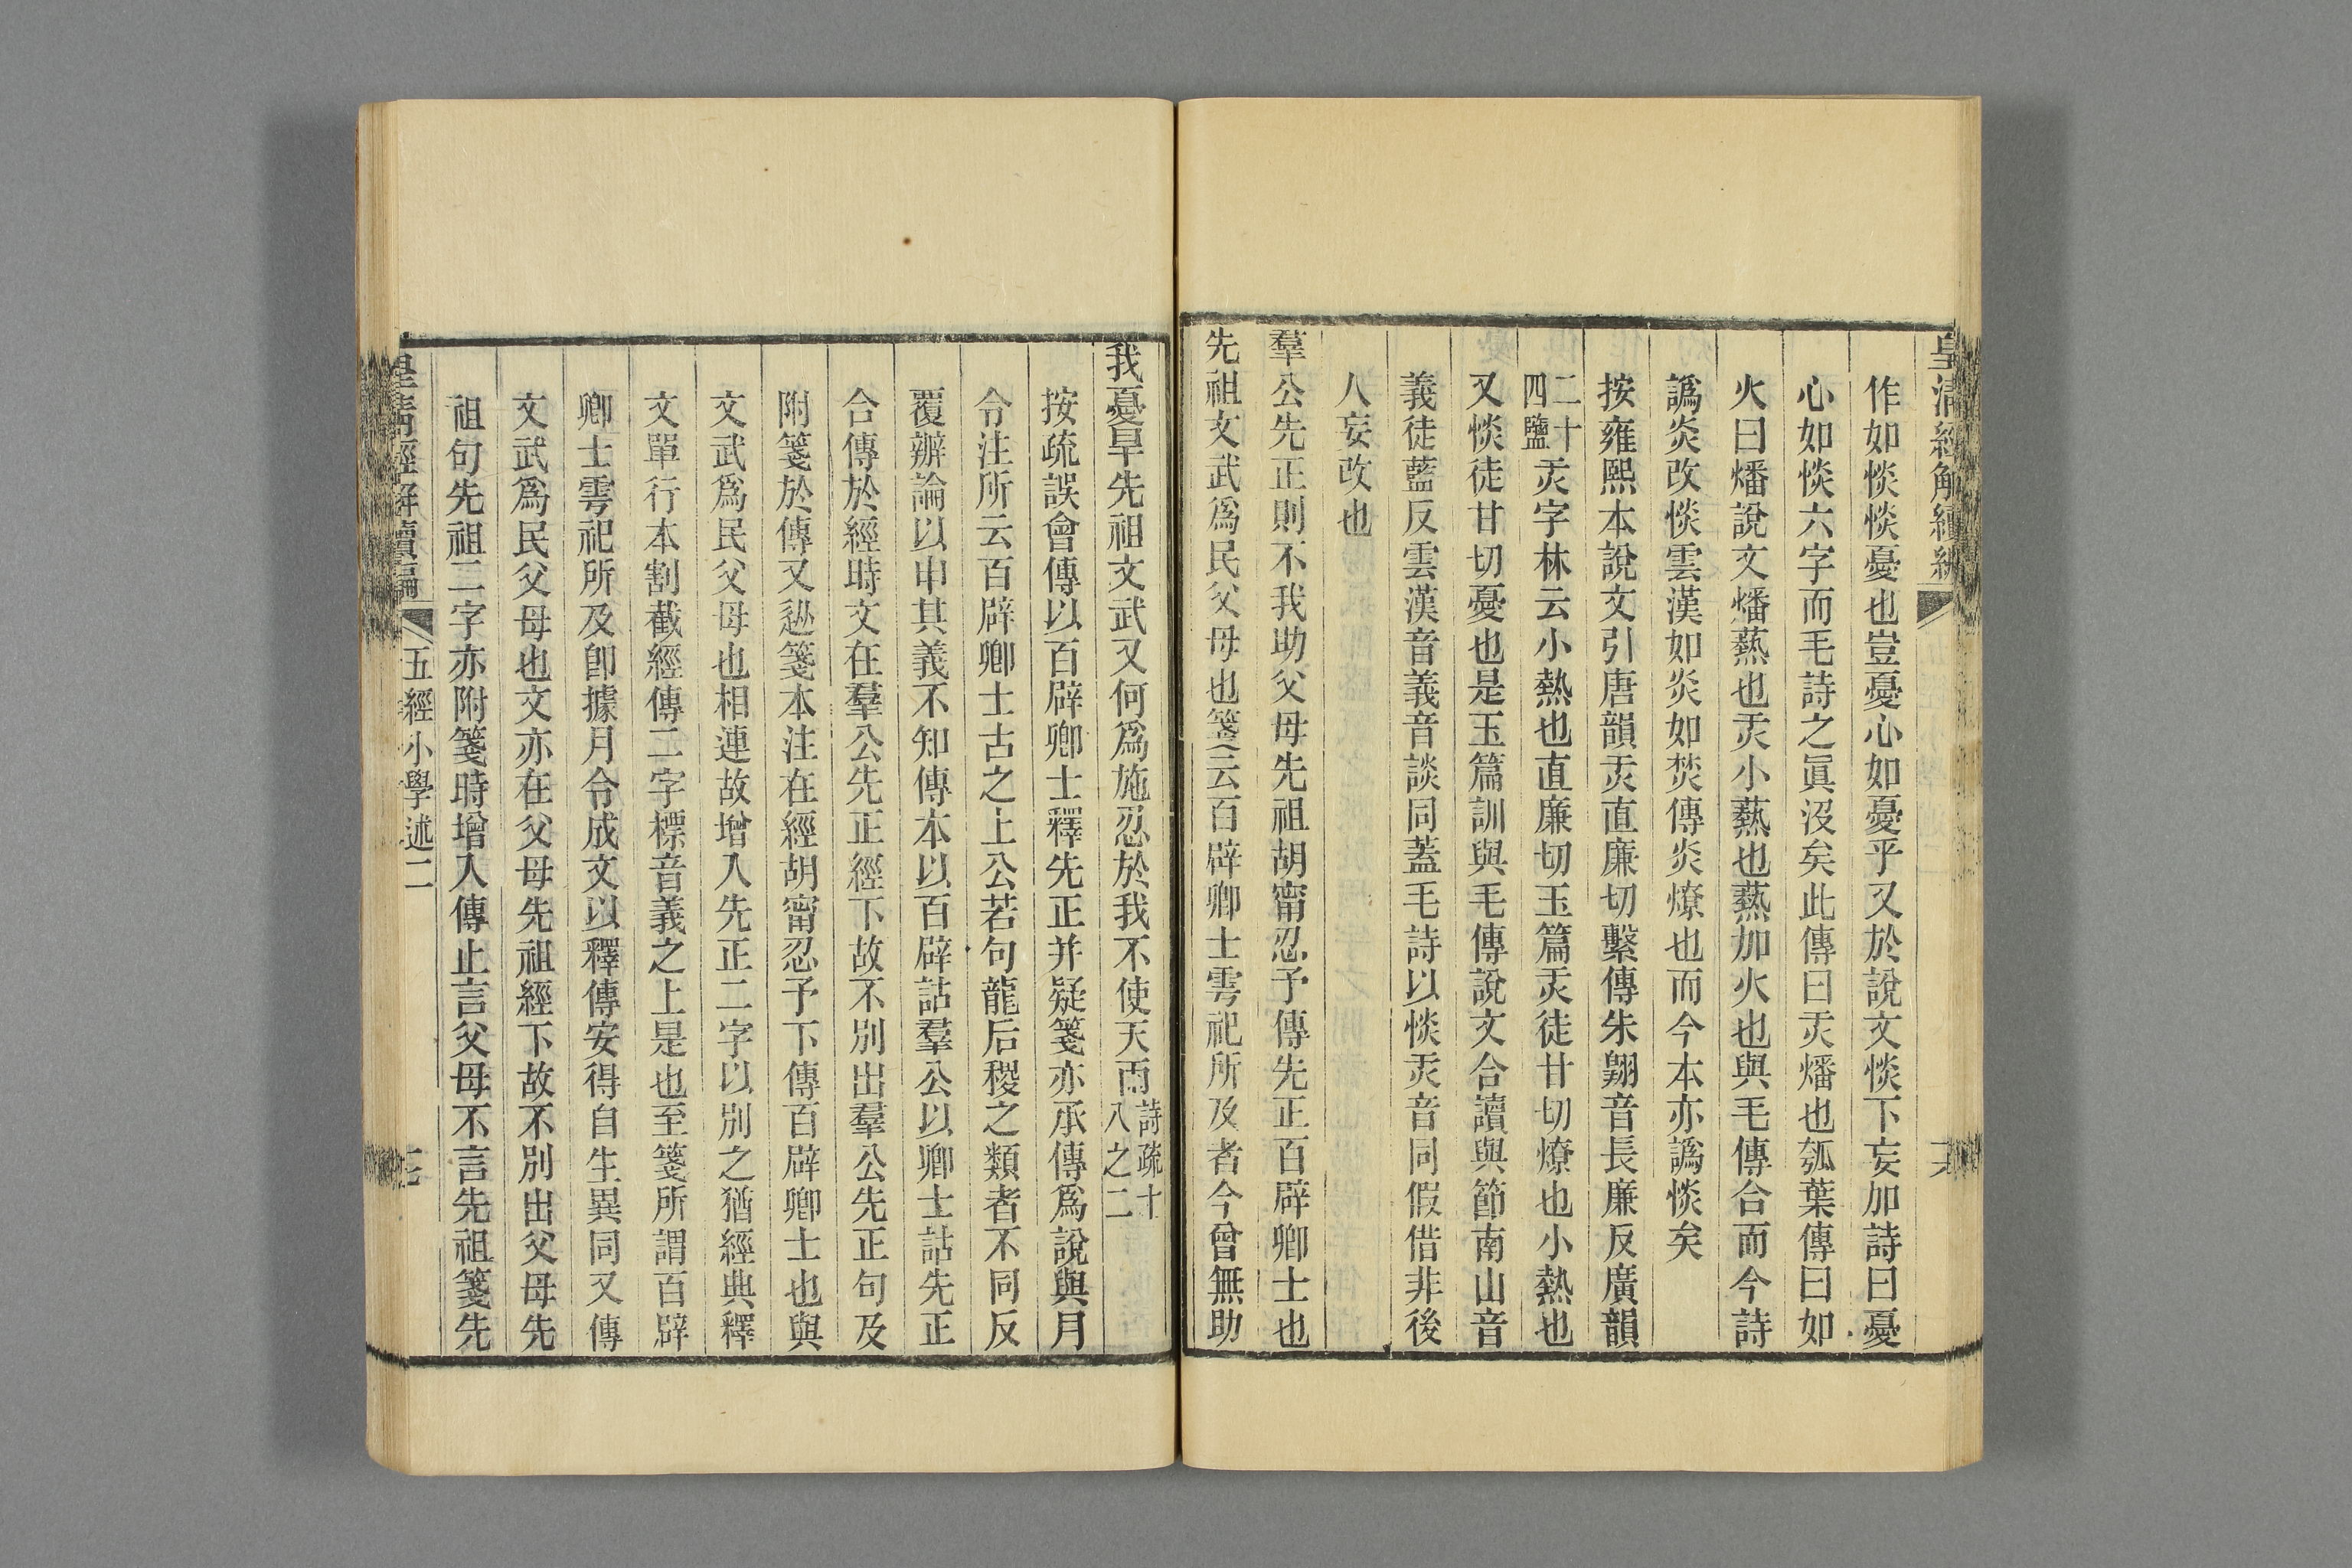 皇清經解續編
作如惔惔憂也豈憂心如憂乎又於說文惔下妄加詩曰憂
心如惔六字而毛詩之眞沒矣此傳曰灻燔也瓠葉傳曰如
火曰燔說文燔爇也灻小爇也爇加火也與毛傳合而今詩
譌炎改惔雲漢如炎如焚傳炎燎也而今本亦譌惔矣
按雍熙本說文引唐韻灻直廉切繫傳朱翺音長廉反廣韻
二十四鹽灻字林云小熱也直廉切玉篇灻徒甘切燎也小熱也
又惔徒甘切憂也是玉篇訓與毛傳說文合讀與節南山音
義徒藍反雲漢音義音談同蓋毛詩以惔灻音同假借非後
人妄改也
羣公先正則不我助父母先祖胡甯忍予傳先正百辟卿士也
先祖文武爲民父母也箋云百辟卿士雩祀所及者今曾無助
我憂旱先祖文武又何爲施忍於我不使天雨詩疏十八之二
按疏誤會傳以百辟卿士釋先正并疑箋亦承傳爲說與月
令注所云百辟卿士古之上公若句龍后稷之類者不同反
覆辦論以申其義不知傳本以百辟詁羣公以卿士詁先正
合傳於經時文在羣公先正經下故不別出羣公先正句及
附箋於傳又迻箋本注在經胡甯忍予下傳百辟卿士也與
文武爲民父母也相連故增入先正二字以別之猶經典釋
文單行本割截經傳二字標音義之上是也至箋所謂百辟
卿士雩祀所及卽據月令成文以釋傳安得自生異同又傳
文武爲民父母也文亦在父母先祖經下故不別出父母先
祖句先祖二字亦附箋時增入傳止言父母不言先祖箋先
皇清經解續編
五經小學述二